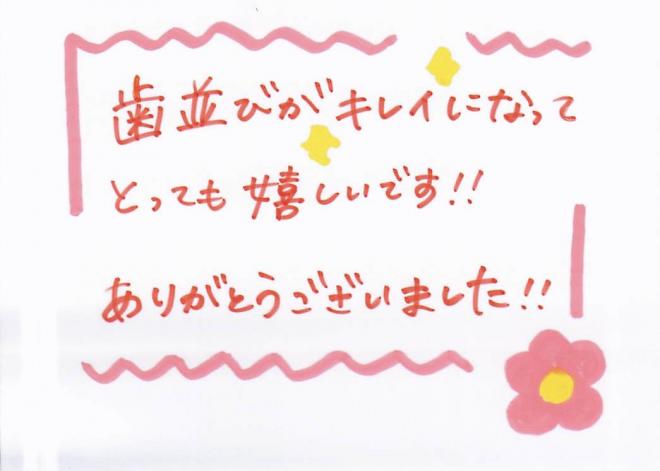 歯並びがキレイになって
とっても嬉しいです!!
ありがとうございました!!